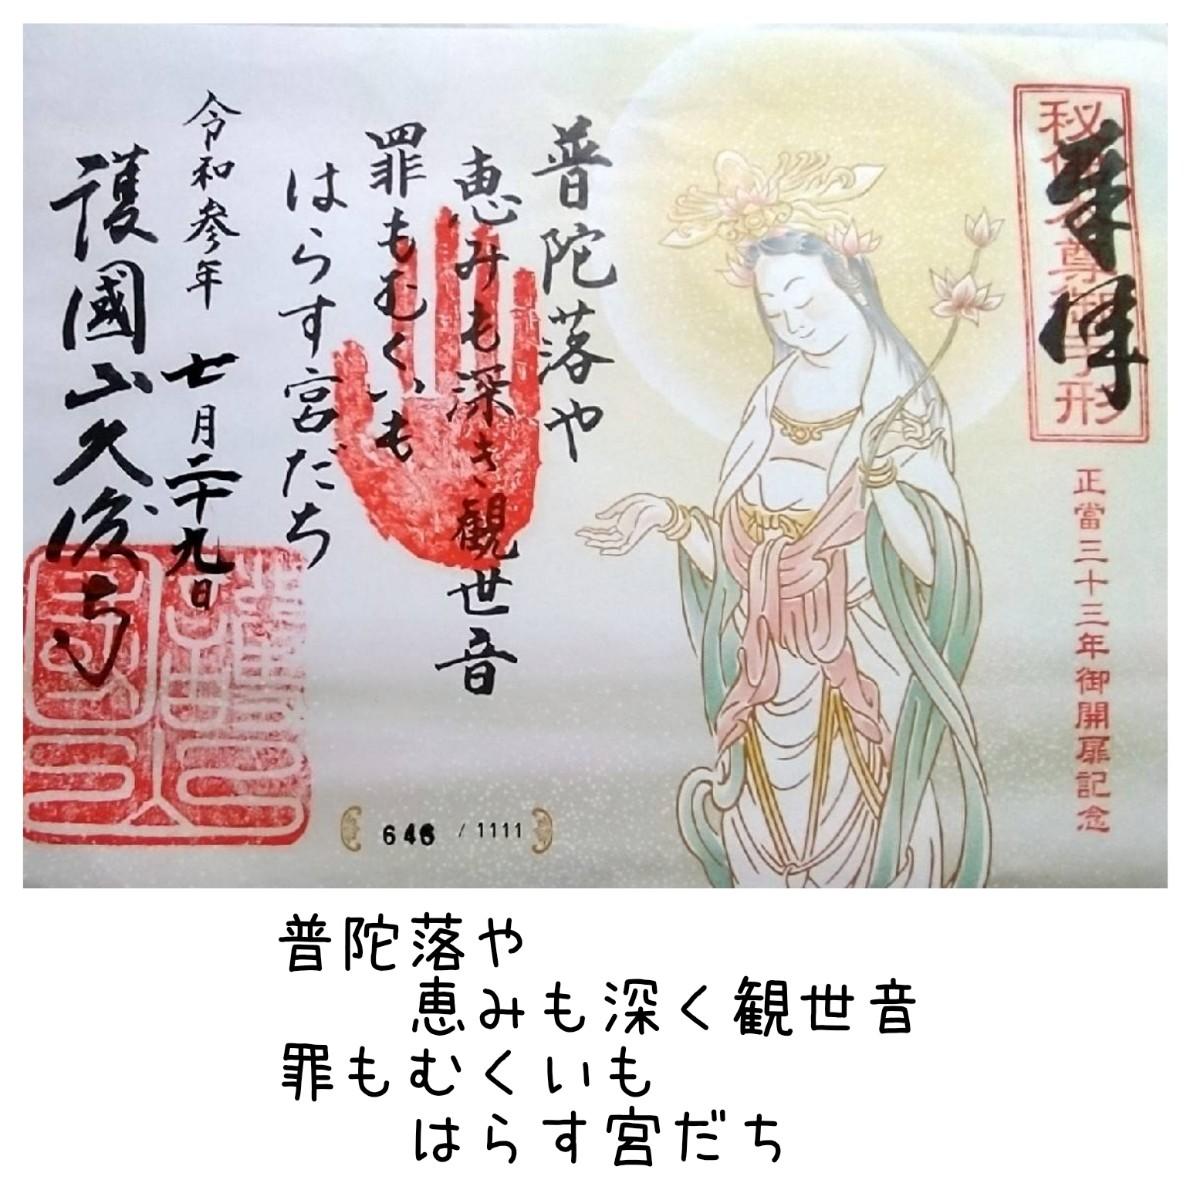 奉拝
秘佛本尊御手形
正當三十三年御開扉記念
普陀落や
恵みも深き観世音
罪もむくいも
はらす宮だち
令和参年
七月二十九日
護國山久後寺
646 / 1111
普陀落や
恵みも深く観世音
罪もむくいも
はらす宮だち